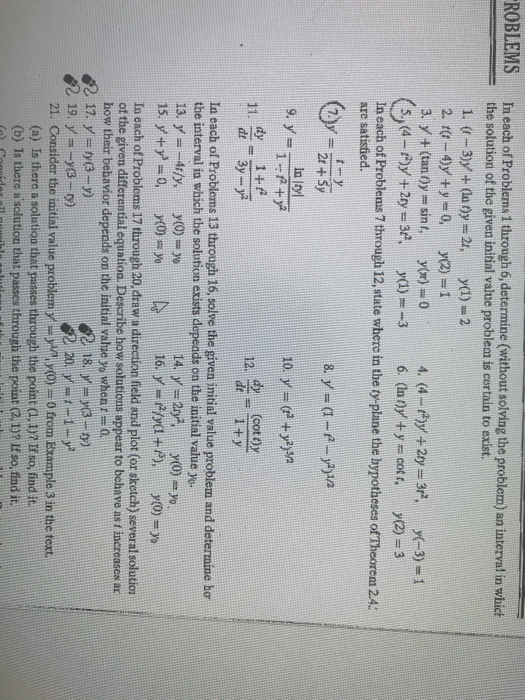 ROBLEMS
In each of Problems 1 through 6, determine (without solving the problem) an interval in which
the solution of the given initial value problem is certain to exist.
1. (t − 3)y′ + (ln t)y = 2t, y(1) = 2
2. t(t − 4)y′ + y = 0, y(2) = 1
3. y′ + (tan t)y = sin t, y(π) = 0
4. (4 − t²)y′ + 2ty = 3t², y(−3) = 1
5. (4 − t²)y′ + 2ty = 3t², y(1) = −3
6. (ln t)y′ + y = cot t, y(2) = 3
In each of Problems 7 through 12, state where in the ty-plane the hypotheses of Theorem 2.4.
are satisfied.
7. y′ = (t − y)/(2t + 5y)
8. y′ = (1 − t² − y²)^1/2
9. y′ = ln |ty|/(1 − t² + y²)
10. y′ = (t² + y²)^3/2
11. dy/dt = (1 + t²)/(3y − y²)
12. dy/dt = (cot t)y/(1 + y)
In each of Problems 13 through 16, solve the given initial value problem and determine ho
the interval in which the solution exists depends on the initial value y₀.
13. y′ = −4t/y, y(0) = y₀
14. y′ = 2ty², y(0) = y₀
15. y′ + y³ = 0, y(0) = y₀
16. y′ = t²/y(1 + t³), y(0) = y₀
In each of Problems 17 through 20, draw a direction field and plot (or sketch) several solution
of the given differential equation. Describe how solutions appear to behave as t increases an
how their behavior depends on the initial value y₀ when t = 0.
17. y′ = ty(3 − y)
18. y′ = y(3 − ty)
19. y′ = −y(3 − ty)
20. y′ = t − 1 − y²
21. Consider the initial value problem y′ = y^1/3, y(0) = 0 from Example 3 in the text.
(a) Is there a solution that passes through the point (1, 1)? If so, find it.
(b) Is there a solution that passes through the point (2, 1)? If so, find it.